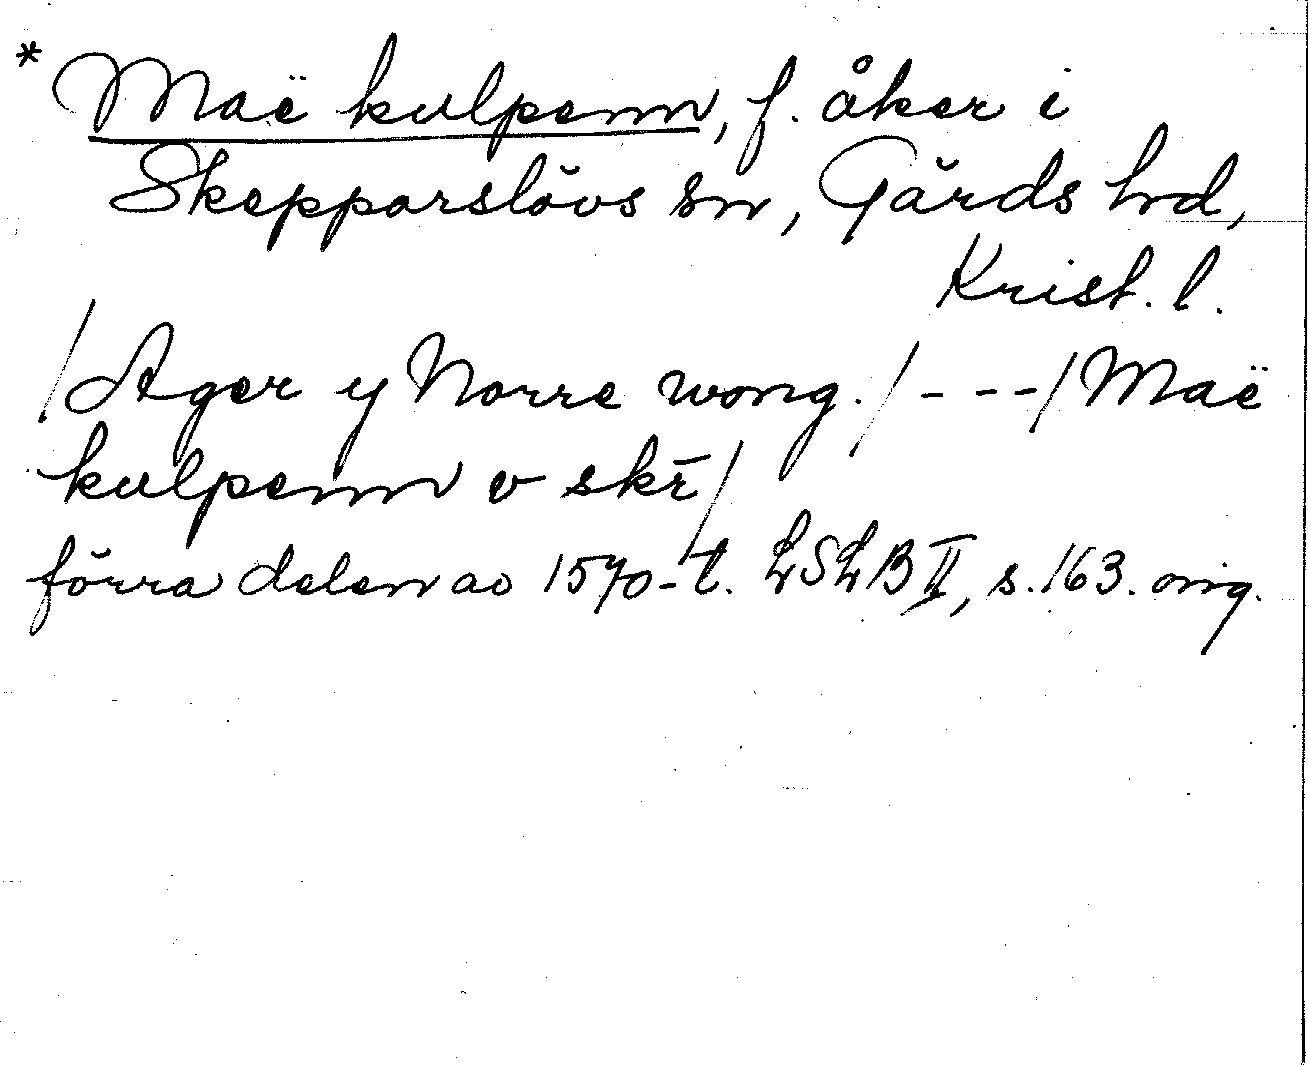 * Maë kulpenn, f. åker i
Skepparslövs sn, Gärds hrd,
Krist. l.
/Ager y Norre wong./ - - -/Maë
kulpenn v skr̄/
förra delen av 1570-t. LSLB II, s. 163. orig.